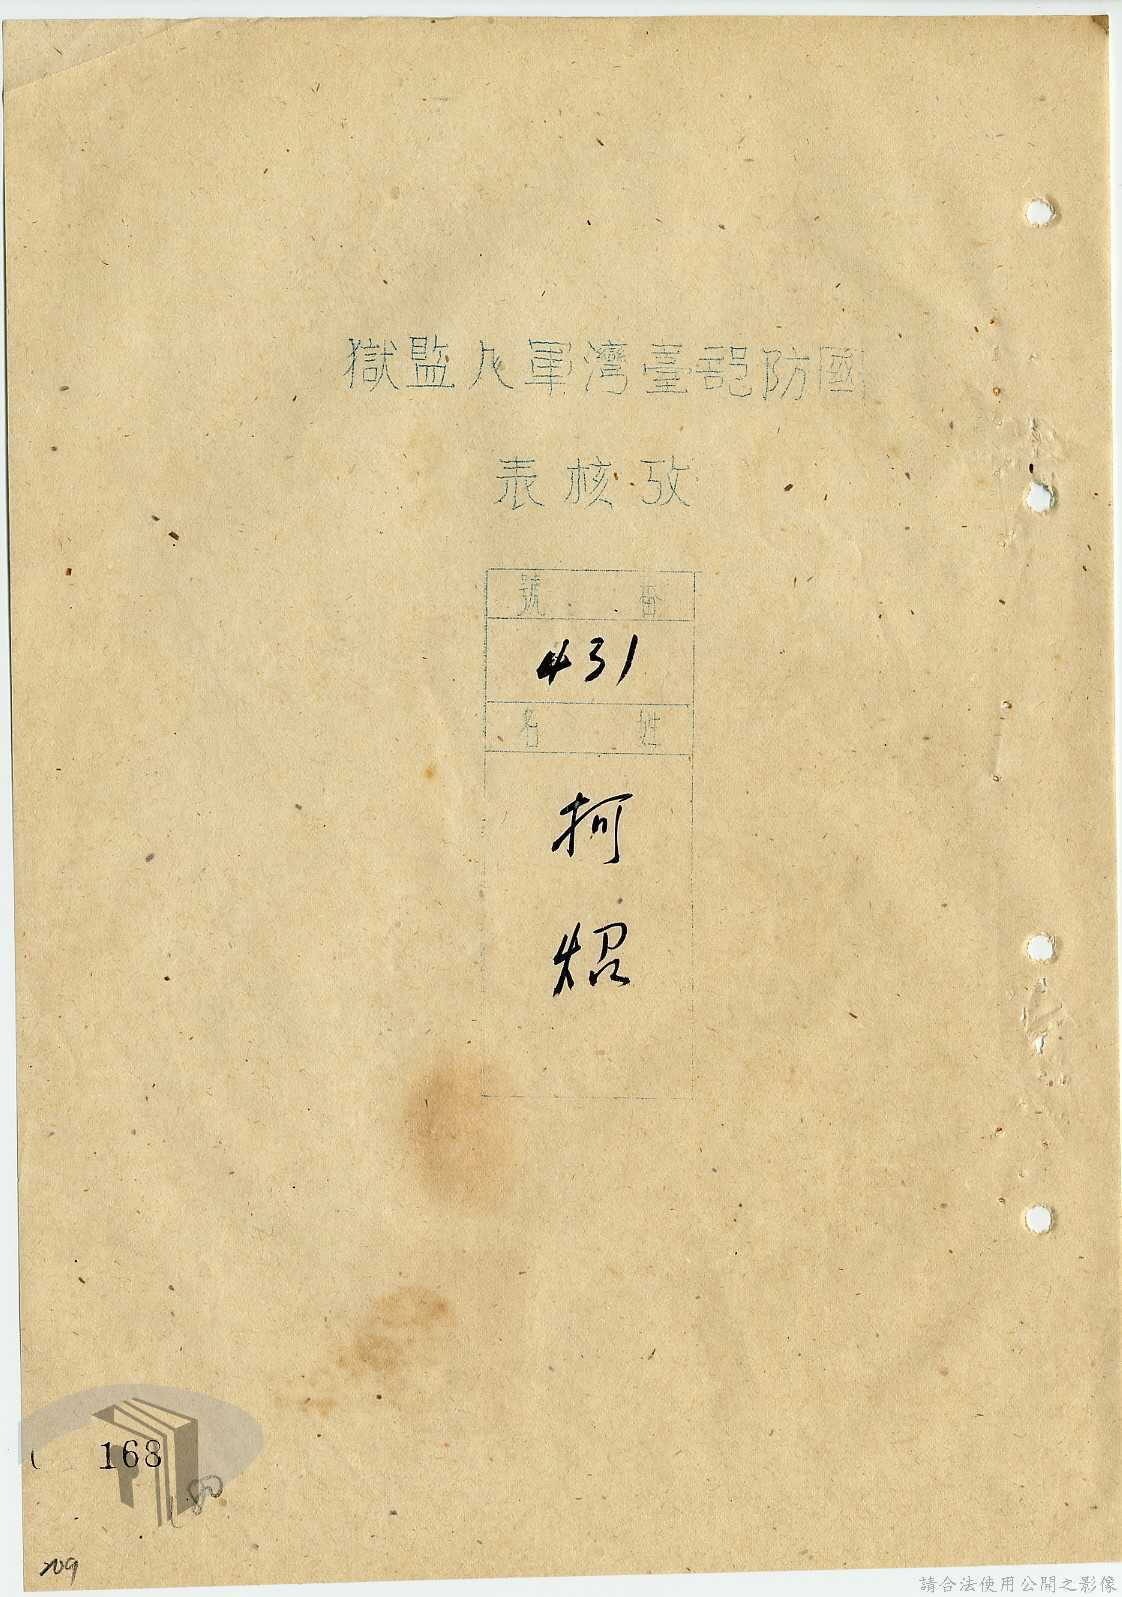 國防部臺灣軍人監獄
攷核表
番號
431
姓名
柯
炤
168
180
209
請合法使用公開之影像